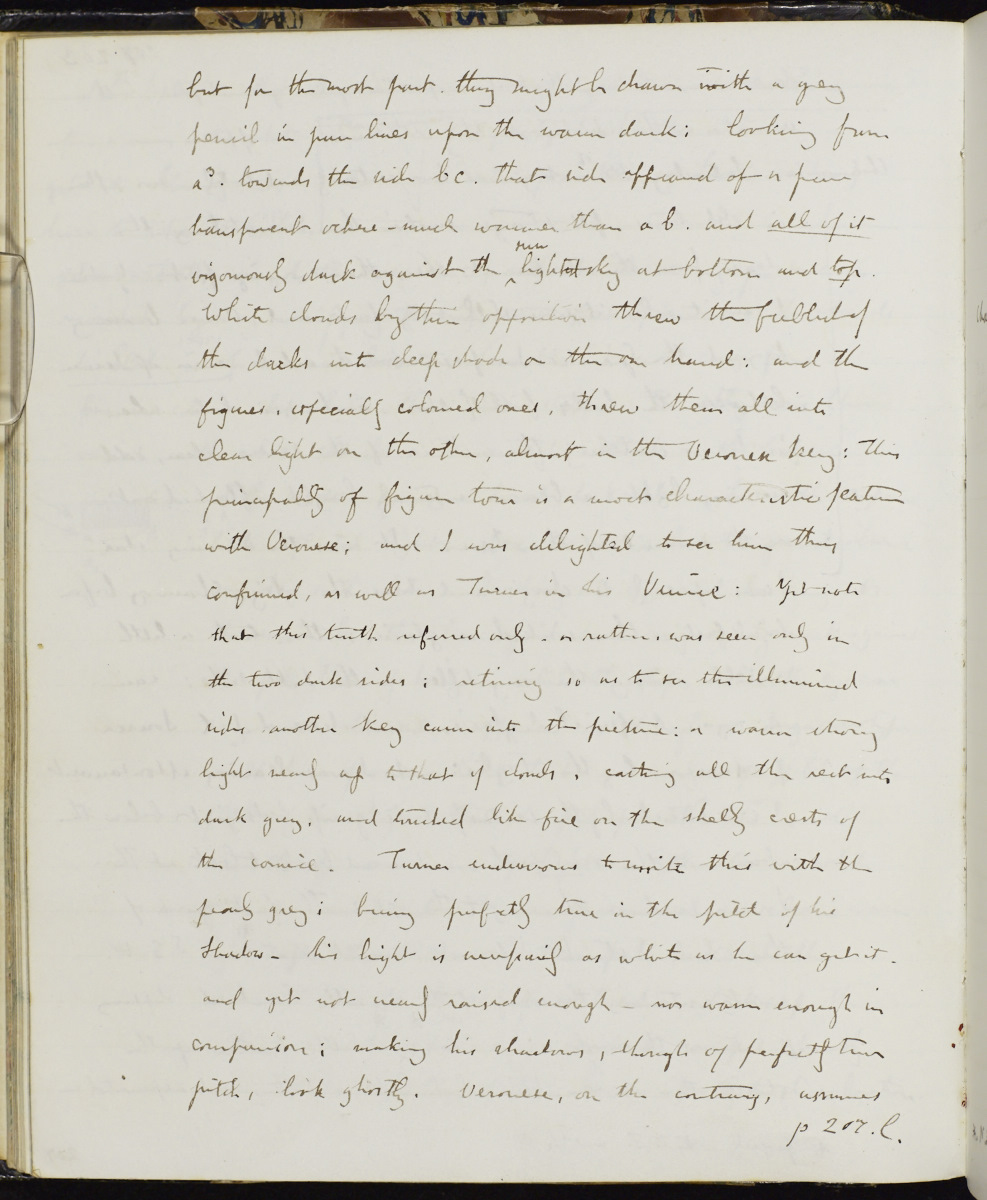 but for the most part. they might be drawn with a grey
pencil in pure lines upon the warm dark: looking from
a³. towards the side bc. that side appeared of a pure
transparent ochre - much warmer than a b. and all of it
vigorously dark against the ^sun lighted sky at bottom and top.
White clouds by their opposition threw the feeblest of
the darks into deep shade on the one hand: and the
figures, especially coloured ones, threw them all into
clear light on the other, almost in the Veronese key: This
principality of figure tone is a most characteristic feature
with Veronese; and I was delighted to see him thus
confirmed, as well as Turner in his Venice: Yet note
that this truth referred only - or rather, was seen only in
the two dark sides; retiring so as to see the illumined
sides another key came into the picture: a warm strong
light nearly up to that of clouds, casting all the rest into
dark grey, and touched like fire on the shelly crests of
the cornice. Turner endeavours to unite this with the
pearly grey; being perfectly true in the pitch of his
Shadow - his light is as white as he can get it -
and yet not nearly raised enough - nor warm enough in
comparison; making his shadows, though of perfectly true
pitch, look ghostly. Veronese, on the contrary, assumes
p 207. l.